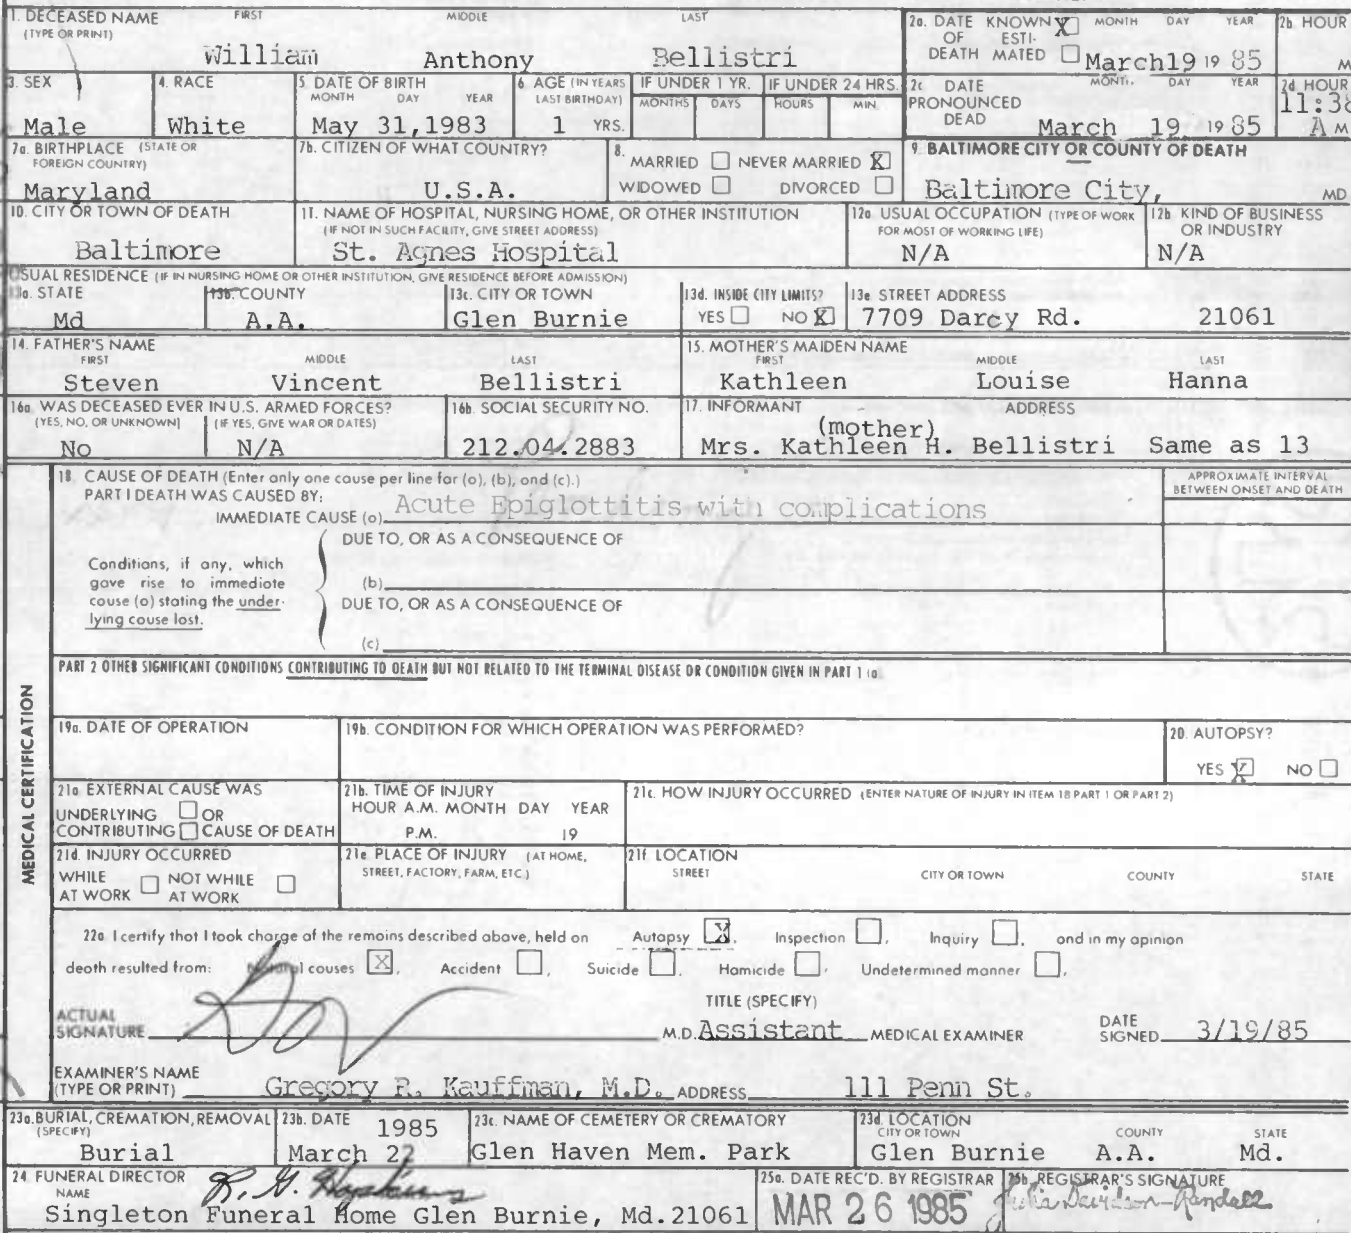 1. DECEASED NAME FIRST MIDDLE LAST
(TYPE OR PRINT)
William Anthony Bellistri
2a. DATE KNOWN X MONTH DAY YEAR
OF ESTI-
DEATH MATED March 19 19 85
2b. HOUR
M
3. SEX
Male
4. RACE
White
5. DATE OF BIRTH
MONTH DAY YEAR
May 31, 1983
6. AGE (IN YEARS
LAST BIRTHDAY)
1 YRS.
IF UNDER 1 YR.
MONTHS DAYS
IF UNDER 24 HRS.
HOURS MIN.
2c. DATE MONTH DAY YEAR
PRONOUNCED
DEAD March 19, 19 85
2d. HOUR
11:38
A M
7a. BIRTHPLACE (STATE OR
FOREIGN COUNTRY)
Maryland
7b. CITIZEN OF WHAT COUNTRY?
U.S.A.
8.
MARRIED NEVER MARRIED X
WIDOWED DIVORCED
9. BALTIMORE CITY OR COUNTY OF DEATH
Baltimore City, MD
10. CITY OR TOWN OF DEATH
Baltimore
11. NAME OF HOSPITAL, NURSING HOME, OR OTHER INSTITUTION
(IF NOT IN SUCH FACILITY, GIVE STREET ADDRESS)
St. Agnes Hospital
12a. USUAL OCCUPATION (TYPE OF WORK
FOR MOST OF WORKING LIFE)
N/A
12b. KIND OF BUSINESS
OR INDUSTRY
N/A
USUAL RESIDENCE (IF IN NURSING HOME OR OTHER INSTITUTION, GIVE RESIDENCE BEFORE ADMISSION)
13a. STATE
Md
13b. COUNTY
A.A.
13c. CITY OR TOWN
Glen Burnie
13d. INSIDE CITY LIMITS?
YES NO X
13e. STREET ADDRESS
7709 Darcy Rd. 21061
14. FATHER'S NAME
FIRST MIDDLE LAST
Steven Vincent Bellistri
15. MOTHER'S MAIDEN NAME
FIRST MIDDLE LAST
Kathleen Louise Hanna
16a. WAS DECEASED EVER IN U.S. ARMED FORCES?
(YES, NO, OR UNKNOWN) (IF YES, GIVE WAR OR DATES)
No N/A
16b. SOCIAL SECURITY NO.
212.04.2883
17. INFORMANT ADDRESS
(mother)
Mrs. Kathleen H. Bellistri Same as 13
MEDICAL CERTIFICATION
18. CAUSE OF DEATH (Enter only one cause per line for (a), (b), and (c).)
PART I DEATH WAS CAUSED BY:
IMMEDIATE CAUSE (a) Acute Epiglottitis with complications
APPROXIMATE INTERVAL
BETWEEN ONSET AND DEATH
DUE TO, OR AS A CONSEQUENCE OF
Conditions, if any, which
gave rise to immediate
cause (a) stating the under-
lying cause last.
(b)
DUE TO, OR AS A CONSEQUENCE OF
(c)
PART 2 OTHER SIGNIFICANT CONDITIONS CONTRIBUTING TO DEATH BUT NOT RELATED TO THE TERMINAL DISEASE OR CONDITION GIVEN IN PART 1 (a)
19a. DATE OF OPERATION
19b. CONDITION FOR WHICH OPERATION WAS PERFORMED?
20. AUTOPSY?
YES X NO
21a EXTERNAL CAUSE WAS
UNDERLYING OR
CONTRIBUTING CAUSE OF DEATH
21b. TIME OF INJURY
HOUR A.M. MONTH DAY YEAR
P.M. 19
21c. HOW INJURY OCCURRED (ENTER NATURE OF INJURY IN ITEM 18 PART 1 OR PART 2)
21d. INJURY OCCURRED
WHILE NOT WHILE
AT WORK AT WORK
21e. PLACE OF INJURY (AT HOME,
STREET, FACTORY, FARM, ETC.)
21f. LOCATION
STREET CITY OR TOWN COUNTY STATE
22a. I certify that I took charge of the remains described above, held on Autopsy X, Inspection , Inquiry , and in my opinion
death resulted from: Natural causes X, Accident , Suicide , Homicide , Undetermined manner ,
TITLE (SPECIFY)
ACTUAL
SIGNATURE M.D. Assistant MEDICAL EXAMINER
DATE
SIGNED 3/19/85
EXAMINER'S NAME
(TYPE OR PRINT) Gregory R. Kauffman, M.D. ADDRESS 111 Penn St.
23a. BURIAL, CREMATION, REMOVAL
(SPECIFY)
Burial
23b. DATE 1985
March 22
23c. NAME OF CEMETERY OR CREMATORY
Glen Haven Mem. Park
23d. LOCATION
CITY OR TOWN COUNTY STATE
Glen Burnie A.A. Md.
24. FUNERAL DIRECTOR
NAME R. G. Hopkins
Singleton Funeral Home Glen Burnie, Md. 21061
25a. DATE REC'D. BY REGISTRAR
MAR 26 1985
25b. REGISTRAR'S SIGNATURE
Julia Davidson-Randall